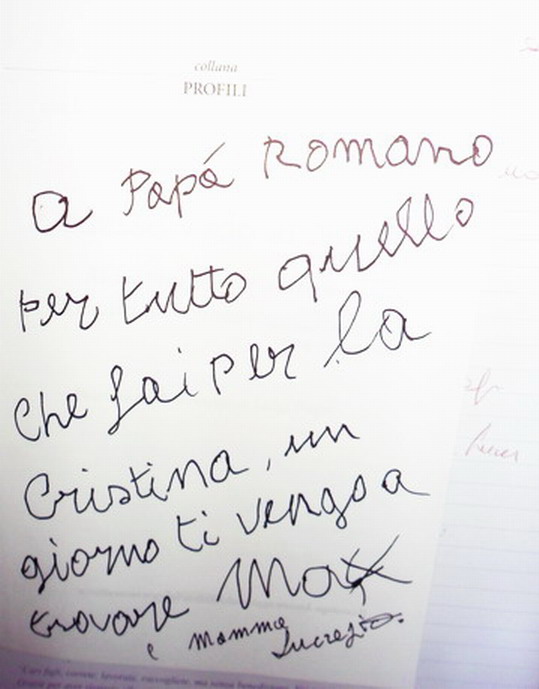 collana
PROFILI
a Papá Romano
per tutto quello
che fai per la
Cristina, un
giorno ti vengo a
trovare Max
e Mamma Lucrezia.